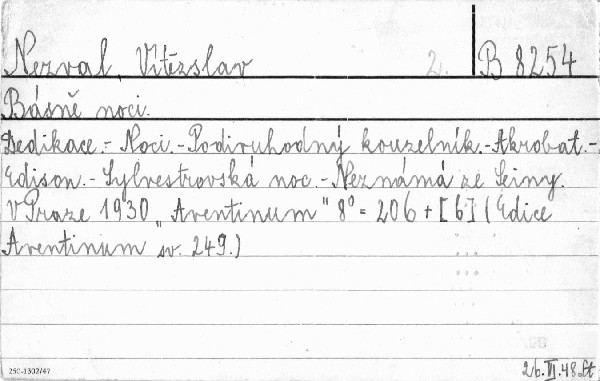 Nezval, Vítězslav 2. B 8254
Básně noci.
Dedikace.- Noci.- Podivuhodný kouzelník.- Akrobat.-
Edison.- Sylvestrovská noc.- Neznámá ze Seiny.
V Praze 1930 „Aventinum" 8° = 206 + [6] (Edice
Aventinum sv. 249.)
25C-1302/47 26.VI.48